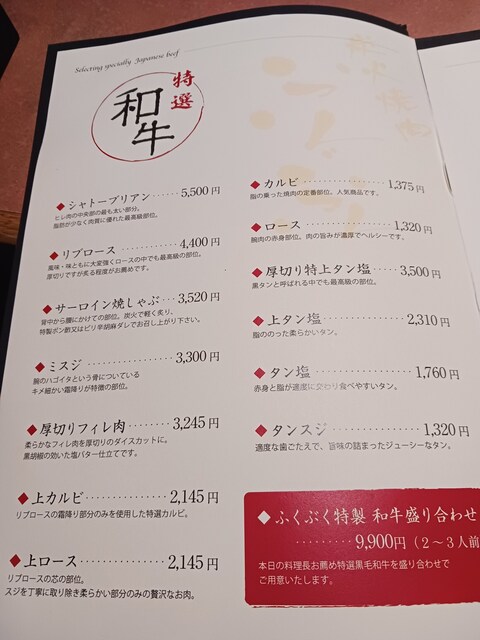 Selecting specially Japanese beef
特選
和牛
◆シャトーブリアン······5,500円
ヒレ肉の中央部の最も太い部分。
脂肪が少なく肉質に優れた最高級部位。
◆リブロース··········4,400円
風味・味ともに大変強くロースの中でも最高級の部位。
厚切りですが炙る程度がお薦めです。
◆サーロイン焼しゃぶ···3,520円
背中から腰にかけての部位。炭火で軽く炙り、
特製ポン酢又はピリ辛胡麻ダレでお召し上がり下さい。
◆ミスジ··············3,300円
腕のハゴイタという骨についている
キメ細かい霜降りが特徴の部位。
◆厚切りフィレ肉········3,245円
柔らかなフィレ肉を厚切りのダイスカットに。
黒胡椒の効いた塩バター仕立てです。
◆上カルビ··············2,145円
リブロースの霜降り部分のみを使用した特選カルビ。
◆上ロース··············2,145円
リブロースの芯の部位。
スジを丁寧に取り除き柔らかい部分のみの贅沢なお肉。
◆カルビ··············1,375円
脂の乗った焼肉の定番部位。人気商品です。
◆ロース··············1,320円
腕肉の赤身部位。肉の旨みが濃厚でヘルシーです。
◆厚切り特上タン塩····3,500円
黒タンと呼ばれる中でも最高級の部位。
◆上タン塩············2,310円
脂ののった柔らかいタン。
◆タン塩··············1,760円
赤身と脂が適度に交わり食べやすいタン。
◆タンスジ············1,320円
適度な歯ごたえで、旨味の詰まったジューシーなタン。
◆ふくぶく特製 和牛盛り合わせ
·········9,900円（２～３人前
本日の料理長お薦め特選黒毛和牛を盛り合わせで
ご用意いたします。